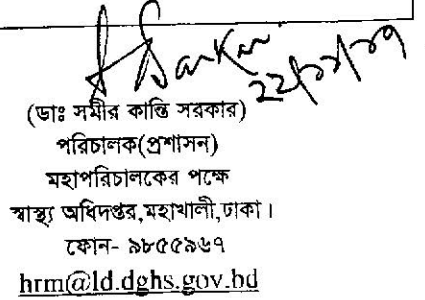 (ডাঃ সমীর কান্তি সরকার)
পরিচালক(প্রশাসন)
মহাপরিচালকের পক্ষে
স্বাস্থ্য অধিদপ্তর,মহাখালী,ঢাকা।
ফোন- ৯৮৫৫৯৬৭
hrm@ld.dghs.gov.bd